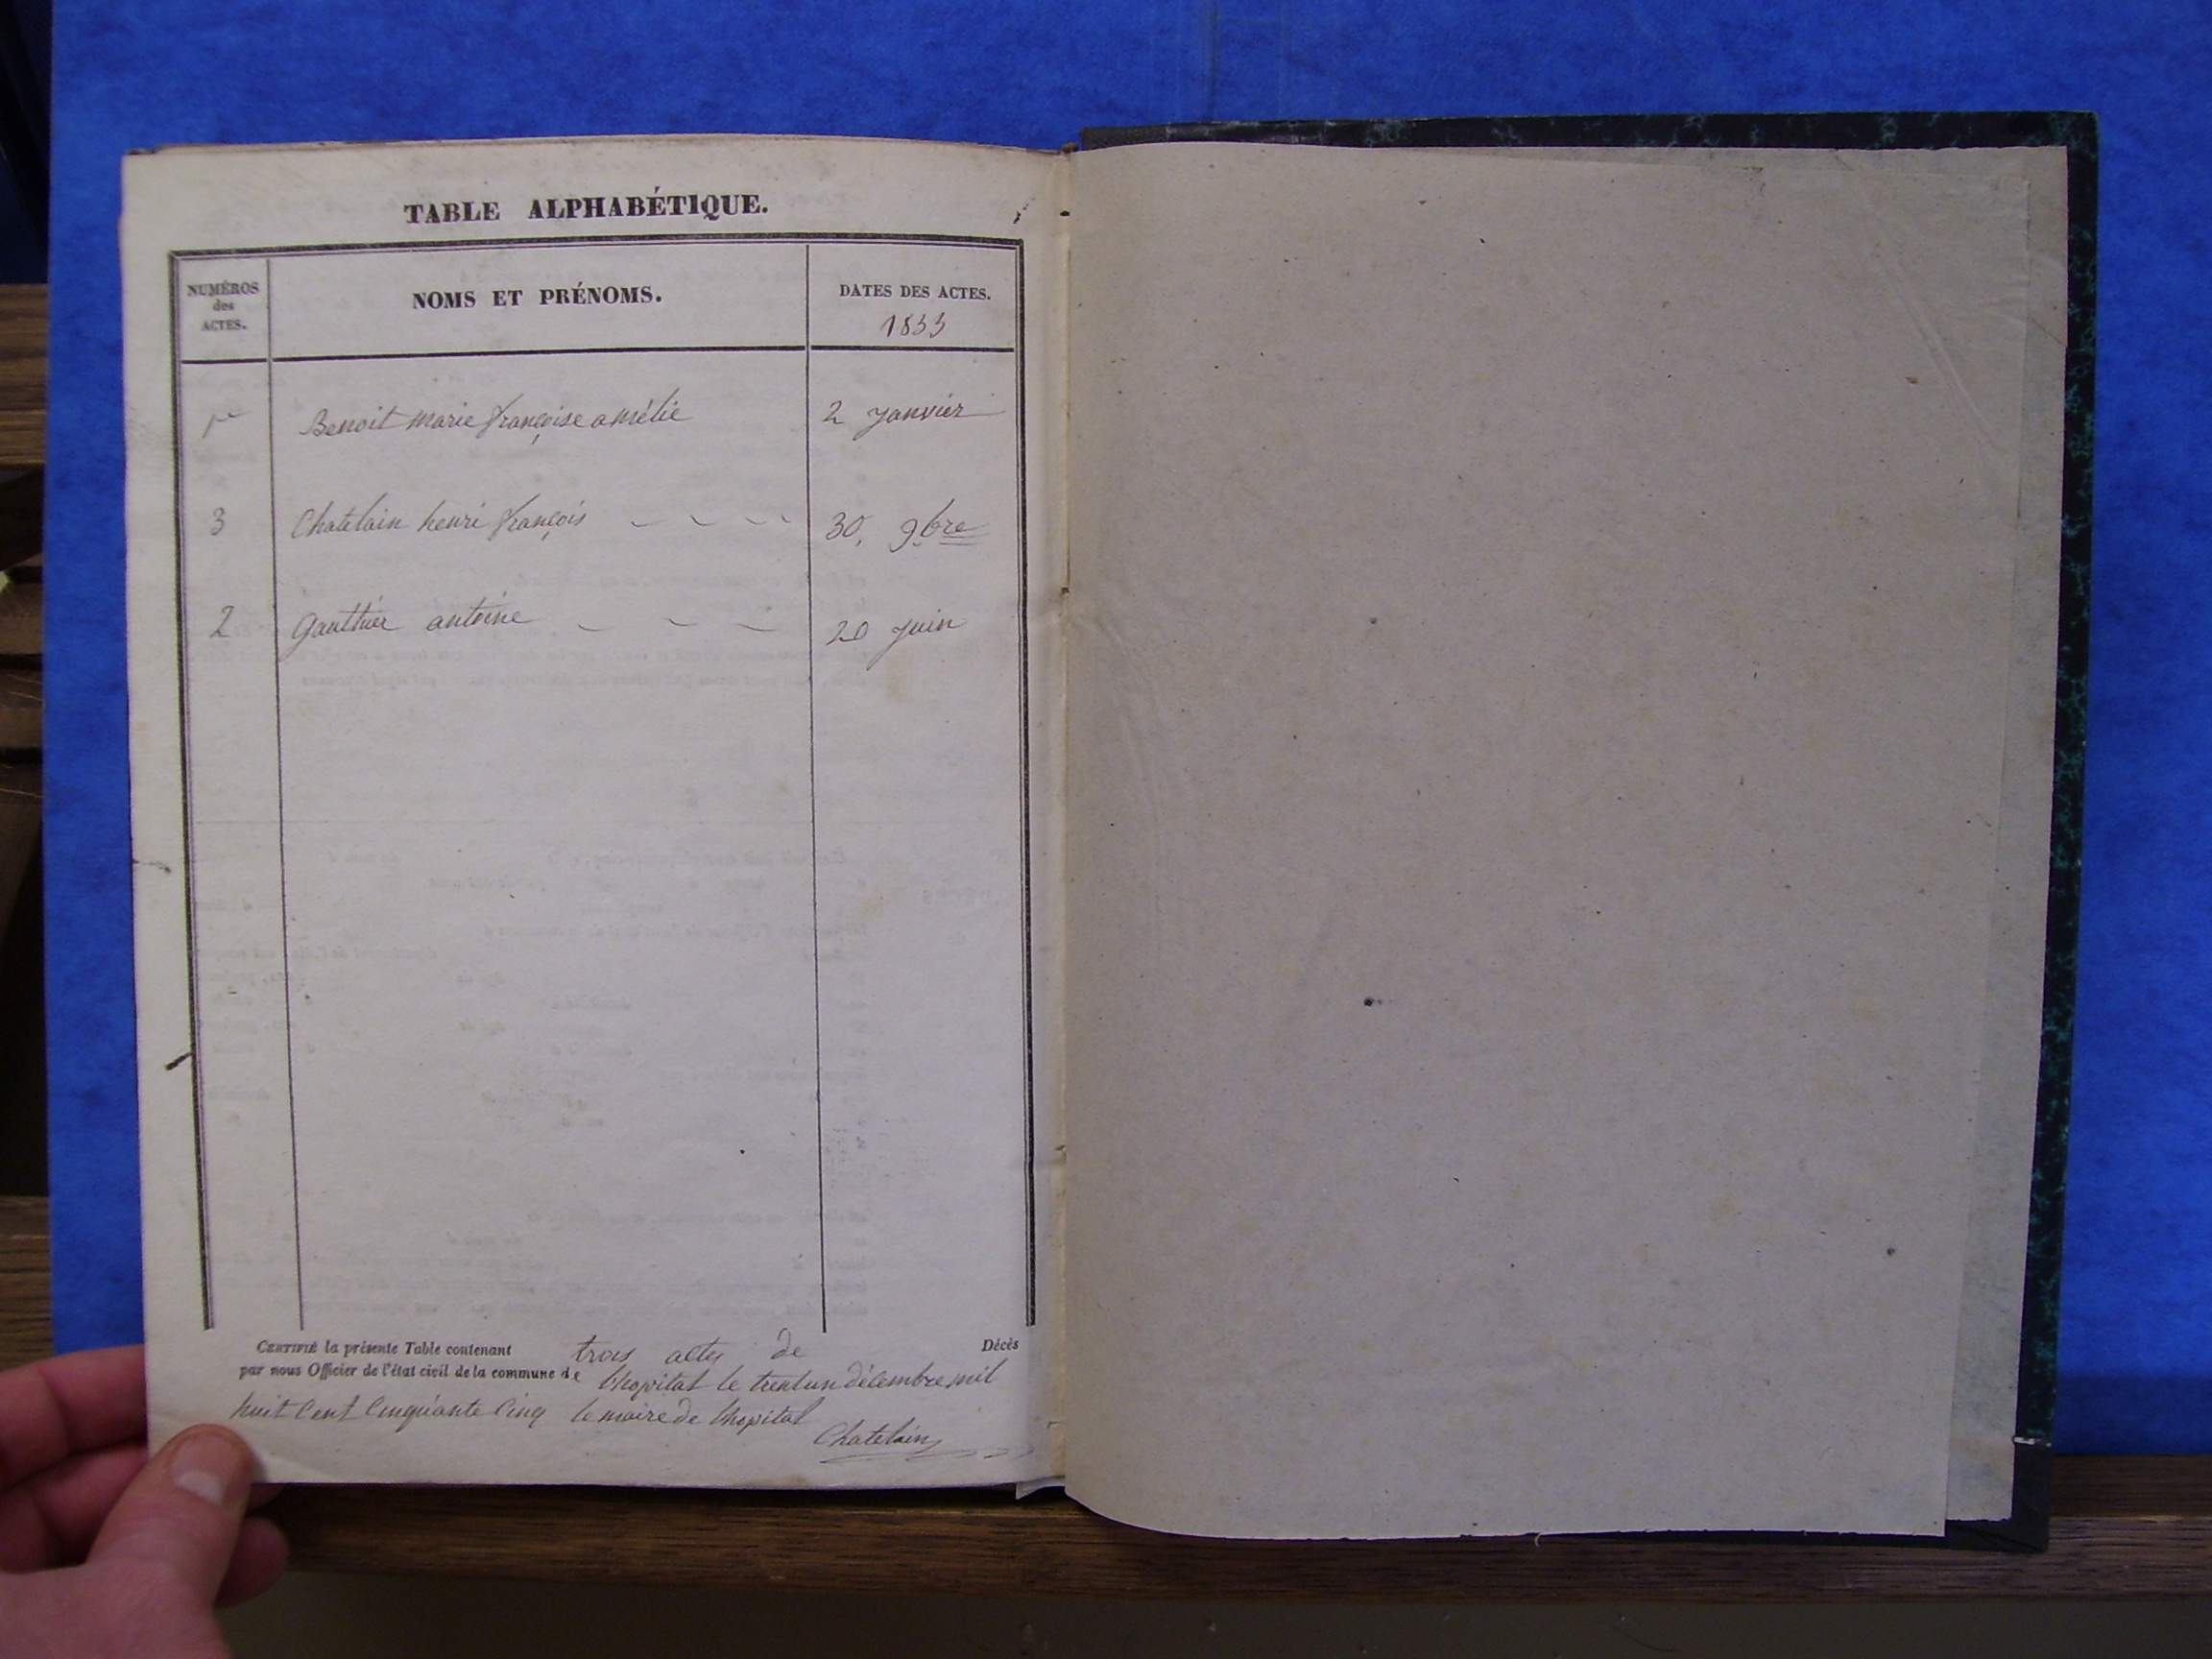 TABLE ALPHABÉTIQUE.
NUMÉROS
des
ACTES.
NOMS ET PRÉNOMS.
DATES DES ACTES.
1855
1er Benoit marie françoise amélie 2 janvier
3 Chatelain henri françois 30, 9bre
2 gauthier antoine 20 juin
CERTIFIÉ la présente Table contenant trois actes de Décès
par nous Officier de l'état civil de la commune de lhopital le trentun décembre mil
huit cent cinquante cinq le maire de lhopital
Chatelain